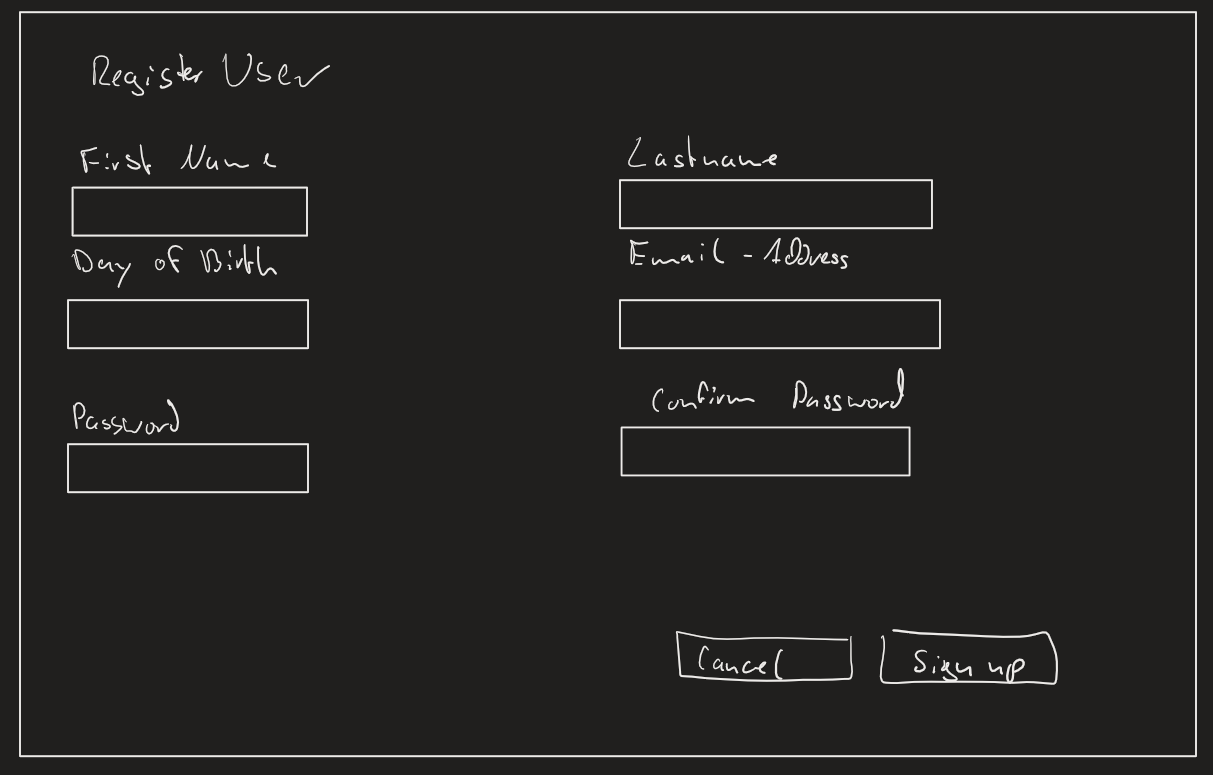 Register User
First Name
Lastname
Day of Birth
Email - Address
Password
Confirm Password
Cancel
Sign up